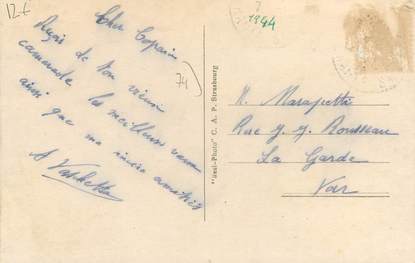 12€
7
1944
74
Cher Copain
Reçois de ton vieux
camarade les meilleurs vœux
ainsi que ma sincère amitié
"Real-Photo" C. A. P. Strasbourg
Rue J. J. Rousseau
La Garde
Var